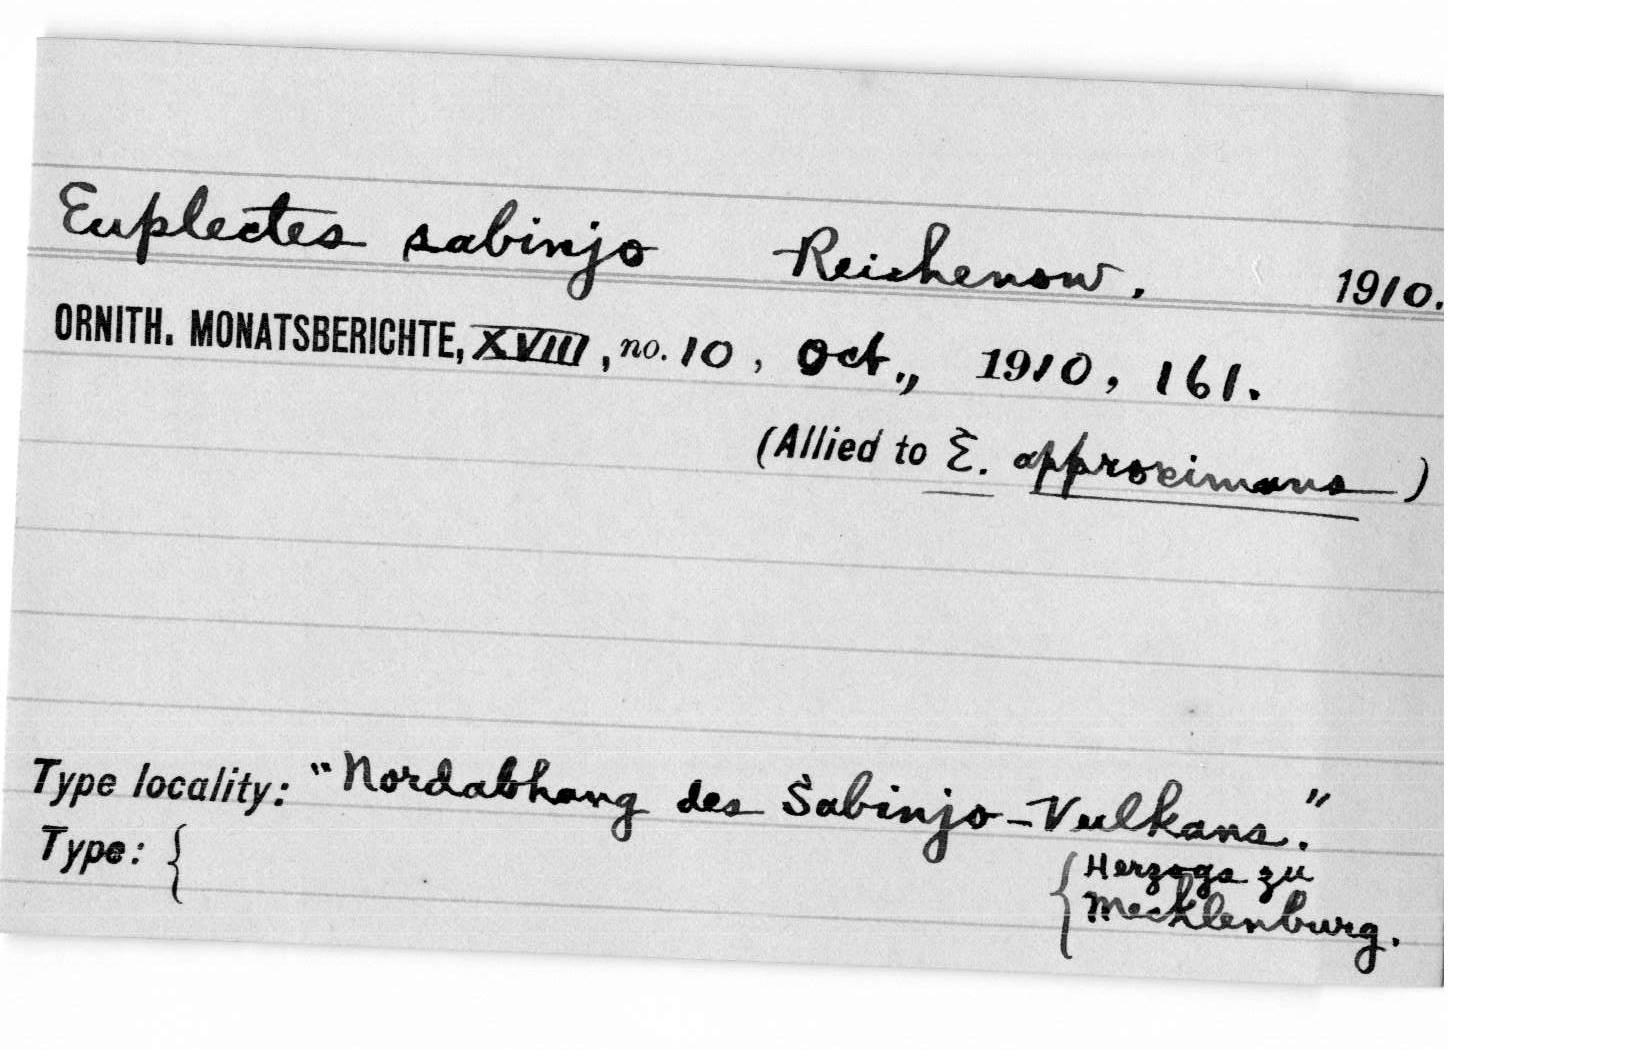 Euplectes sabinjo Reichenow. 1910.
ORNITH. MONATSBERICHTE, XVIII, no. 10, Oct., 1910, 161.
(Allied to E. approximans)
Type locality: "Nordabhang des Sabinjo-Vulkans."
Type: { { Herzogs zu
Mecklenburg.